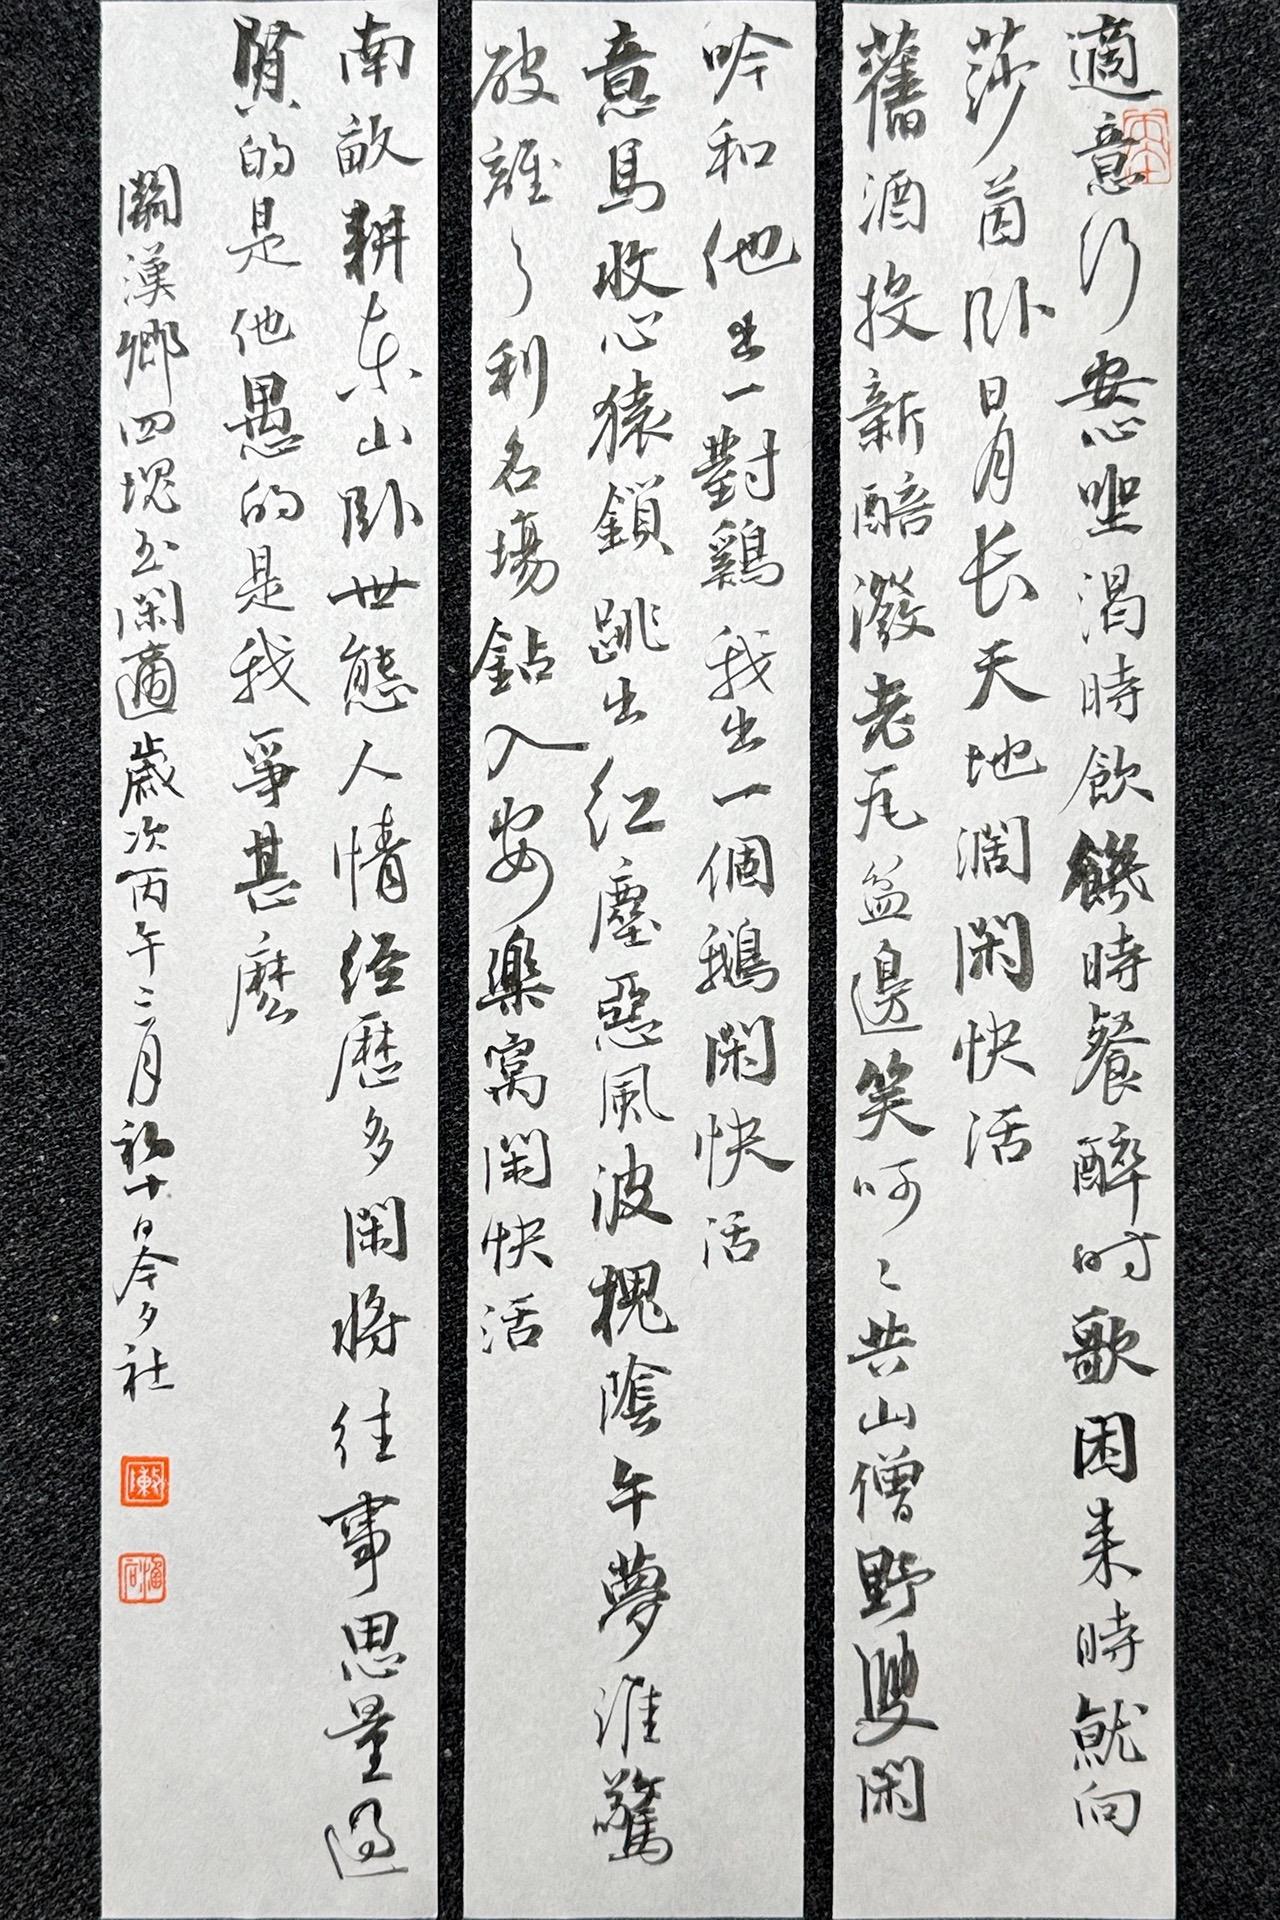 適意行安心坐渴時飲饑時餐醉时歌困来時就向
莎茵卧日月长天地濶閑快活
舊酒投新醅潑老瓦盆邊笑呵〻共山僧野叟閑
吟和他出一對鷄我出一個鵝閑快活
意馬收心猿鎖跳出红塵惡風波槐陰午夢誰驚
破離了利名場鉆入安樂窩閑快活
南畝耕东山卧世態人情经歷多閑将往事思量過
賢的是他愚的是我爭甚麽
關漢卿四塊玉閑適歲次丙午二月初十日今夕社